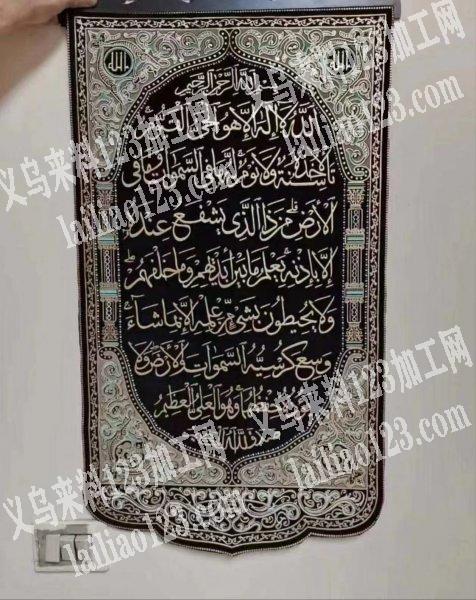 الله
الله
بسم الله الرحمن الرحيم
الله لا إله إلا هو الحي القيوم لا
تأخذه سنة ولا نوم له ما في السموات وما في
الأرض من ذا الذي يشفع عنده
إلا بإذنه يعلم ما بين أيديهم وما خلفهم
ولا يحيطون بشيء من علمه إلا بما شاء
وسع كرسيه السموات والأرض ولا
يؤده حفظهما وهو العلي العظيم
义乌来料123加工网
lailiao123.com
义乌来料123加工网
lailiao123.com
义乌来料123加工网
lailiao123.com
义乌来料123加工网
lailiao123.com